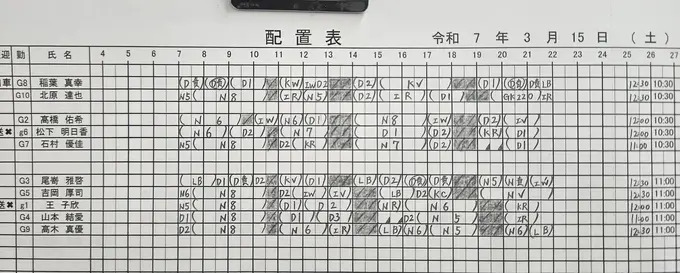 配置表 令和 7 年 3 月 15 日 (土)
迎 勤 氏名 7 8 9 10 11 12 13 14 15 16 17 18 19 20 21 22 23 24 25 26 27
車 G8 稲葉 真幸 (D責)( D1 ) (KW)(IWD2 (D2)( KV ) (D1) D責 LB 12:30 10:30
G10 北原 達也 N5( N8 ) (IR)(N5) (D2)( IR )(D1) ( GK220 )IR 12:00 10:30
G2 高橋 佑希 ( N 6 ) (IW)(N6)(D1) ( N8 )(IW) (D2)( IV ) 12:00 10:30
送✖ g6 松下 明日香 ( N6 )( D2 ) ( N7 ) ( D1 ) (D2)(KR)(D1) 12:00 10:30
G7 石村 優佳 N5( N8 ) (D2)(KR)( N7 ) (D1) 11:00 10:30
G3 尾嵜 雅啓 ( LB )D1(D責)D2(KV)(D1) (LB)(D2) (D責) (N5)(N責)(IW) 12:30 11:00
G5 吉岡 厚司 N6( N8 ) (D2)(IW)(IV) ( LB )(D2)(KC) ( NV ) 12:30 11:00
送✖ g1 王 子欣 N5( N8 ) (D1)( D2 ) (NR)( N6 ) (KR) 12:00 11:00
G4 山本 結愛 D1( N8 ) (D1)( D3 ) D2( N 5 ) (IR) 11:00 11:00
G9 高木 真優 D2( N8 ) (N6)(IR) (LB)(N6)(N5) (N6)(LB) 12:30 11:00